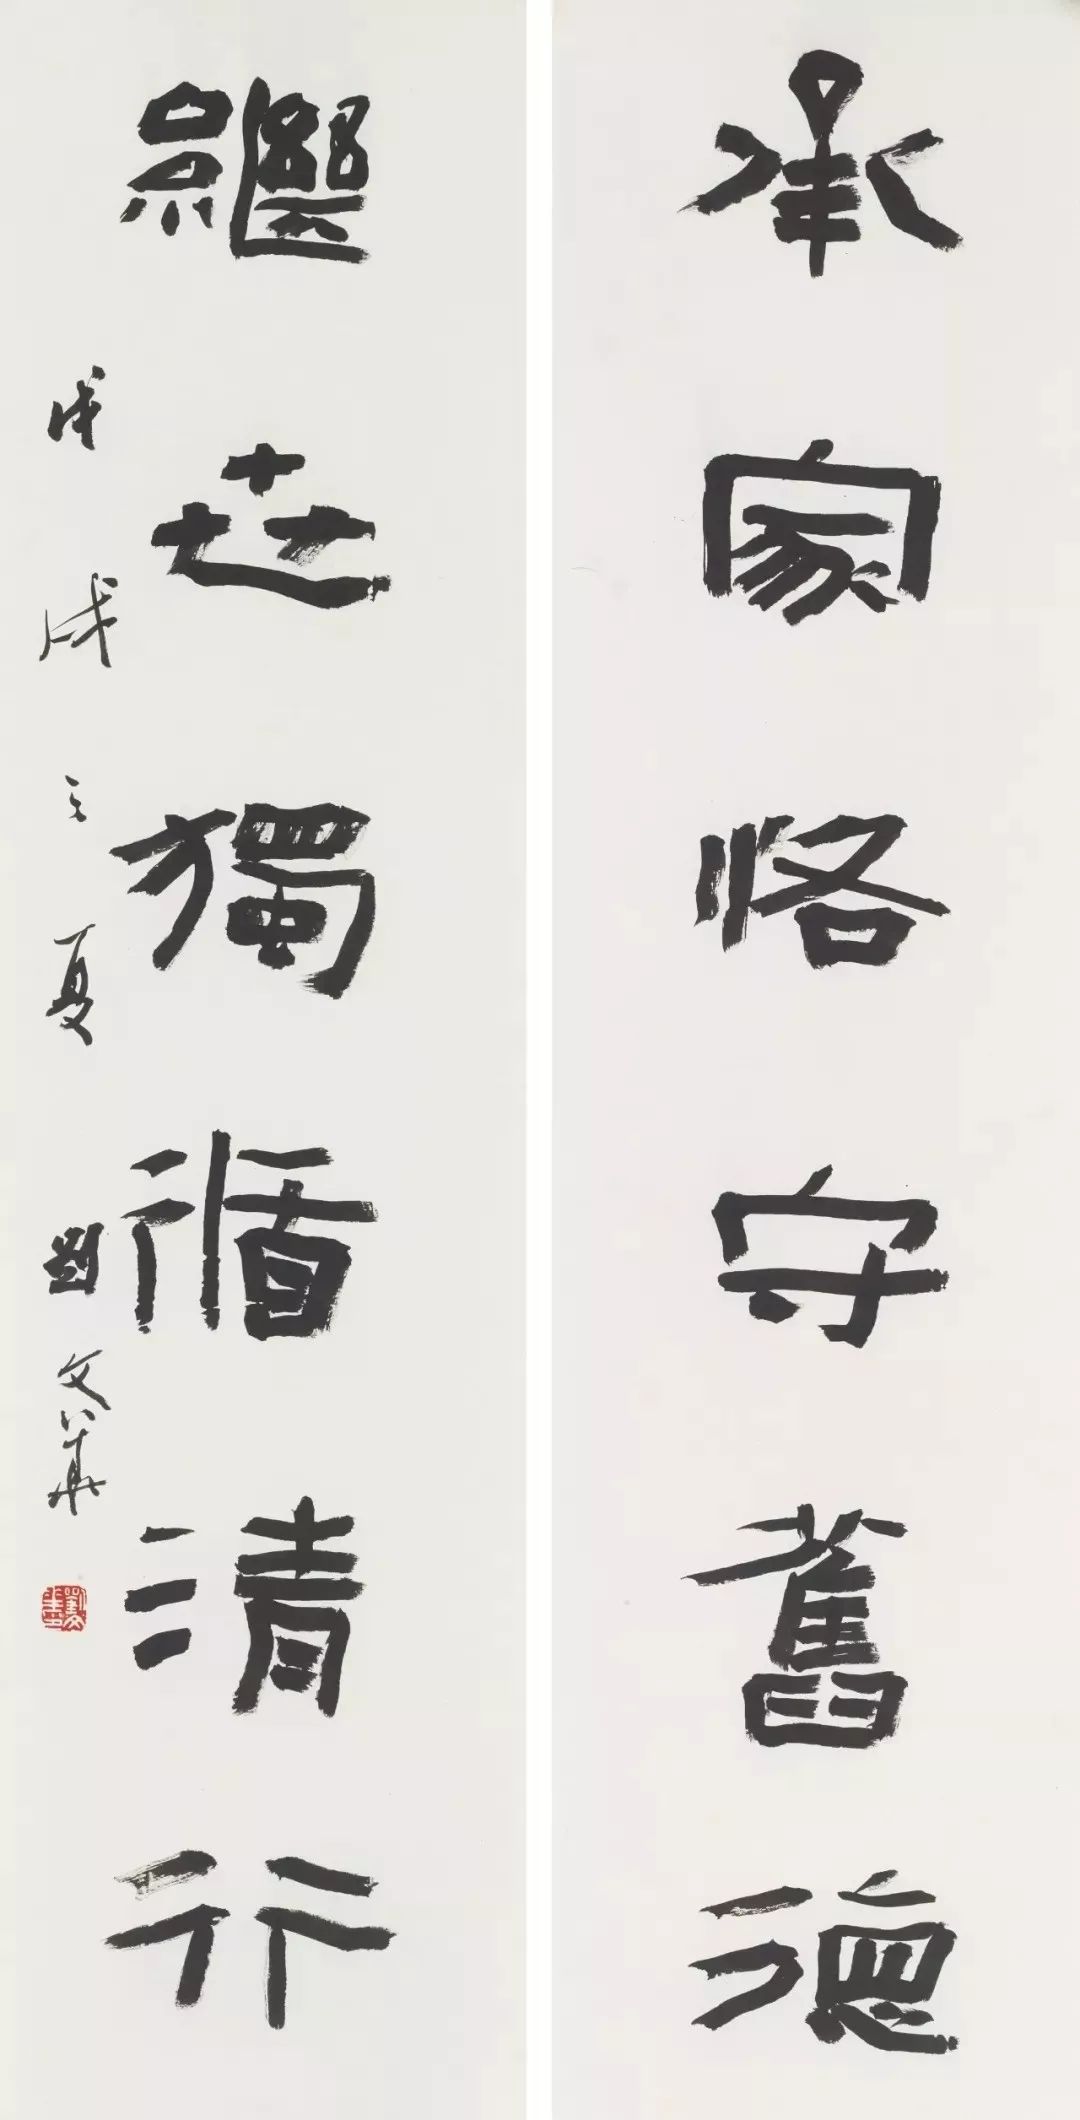 承家恪守舊德
繼世獨循清行
戊戌之夏劉文華
劉文華